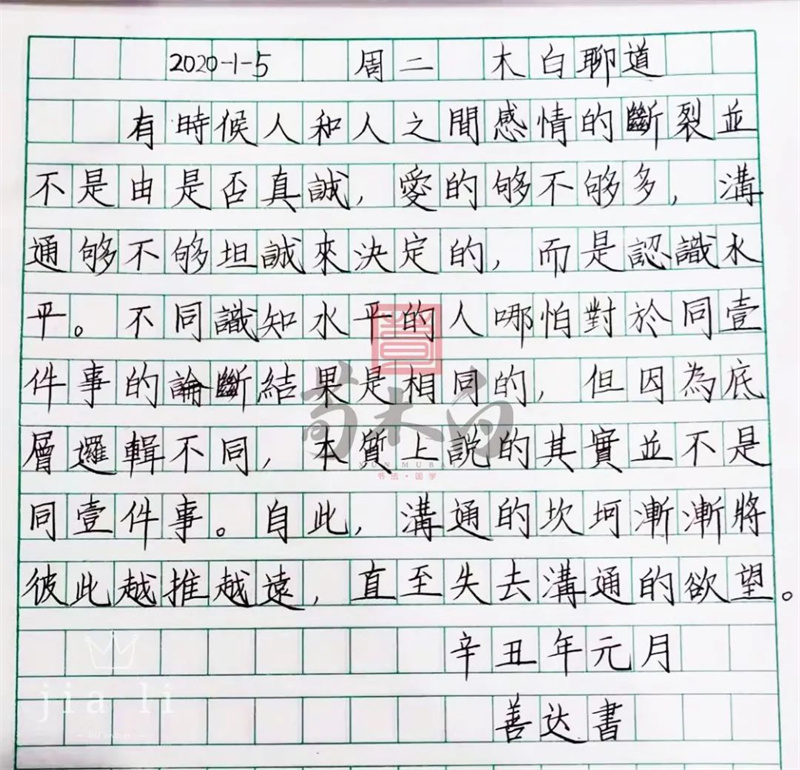 2020-1-5 周二 木白聊道
有時候人和人之間感情的斷裂並
不是由是否真誠，愛的够不够多，溝
通够不够坦誠來決定的，而是認識水
平。不同識知水平的人哪怕對於同壹
件事的論斷結果是相同的，但因為底
層邏輯不同，本質上説的其實並不是
同壹件事。自此，溝通的坎坷漸漸將
彼此越推越遠，直至失去溝通的欲望。
辛丑年元月
善达書
荀木白
XUN MUBAI
书法·国学
jia li